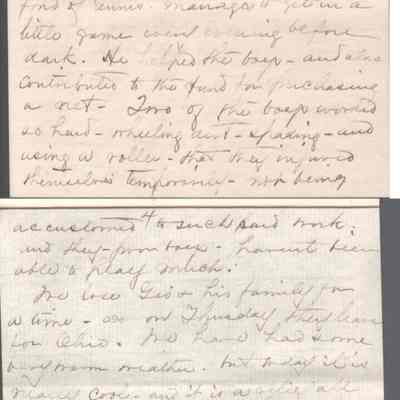 fond of tennis. manages to get in a
little game every evening before
dark. He helped the boys - and also
contributed to the fund for purchasing
a net - Two of the boys worked
so hard - wheeling dirt - spading - and
using a roller - that they injured
themselves temporarily - not being
4
accustomed to such hard work;
and they - poor boys - haven't been
able to play much.
We lose Geo & his family for
a time - as on Thursday they leave
for Ohio. We have had some
very warm weather. but today it is
cool - and it is a all